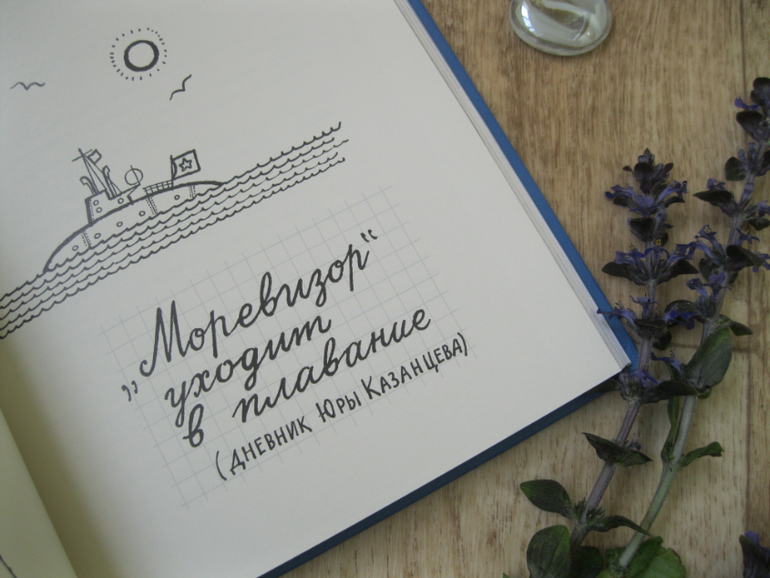 „Моревизор“
уходит
в плавание
(дневник Юры Казанцева)